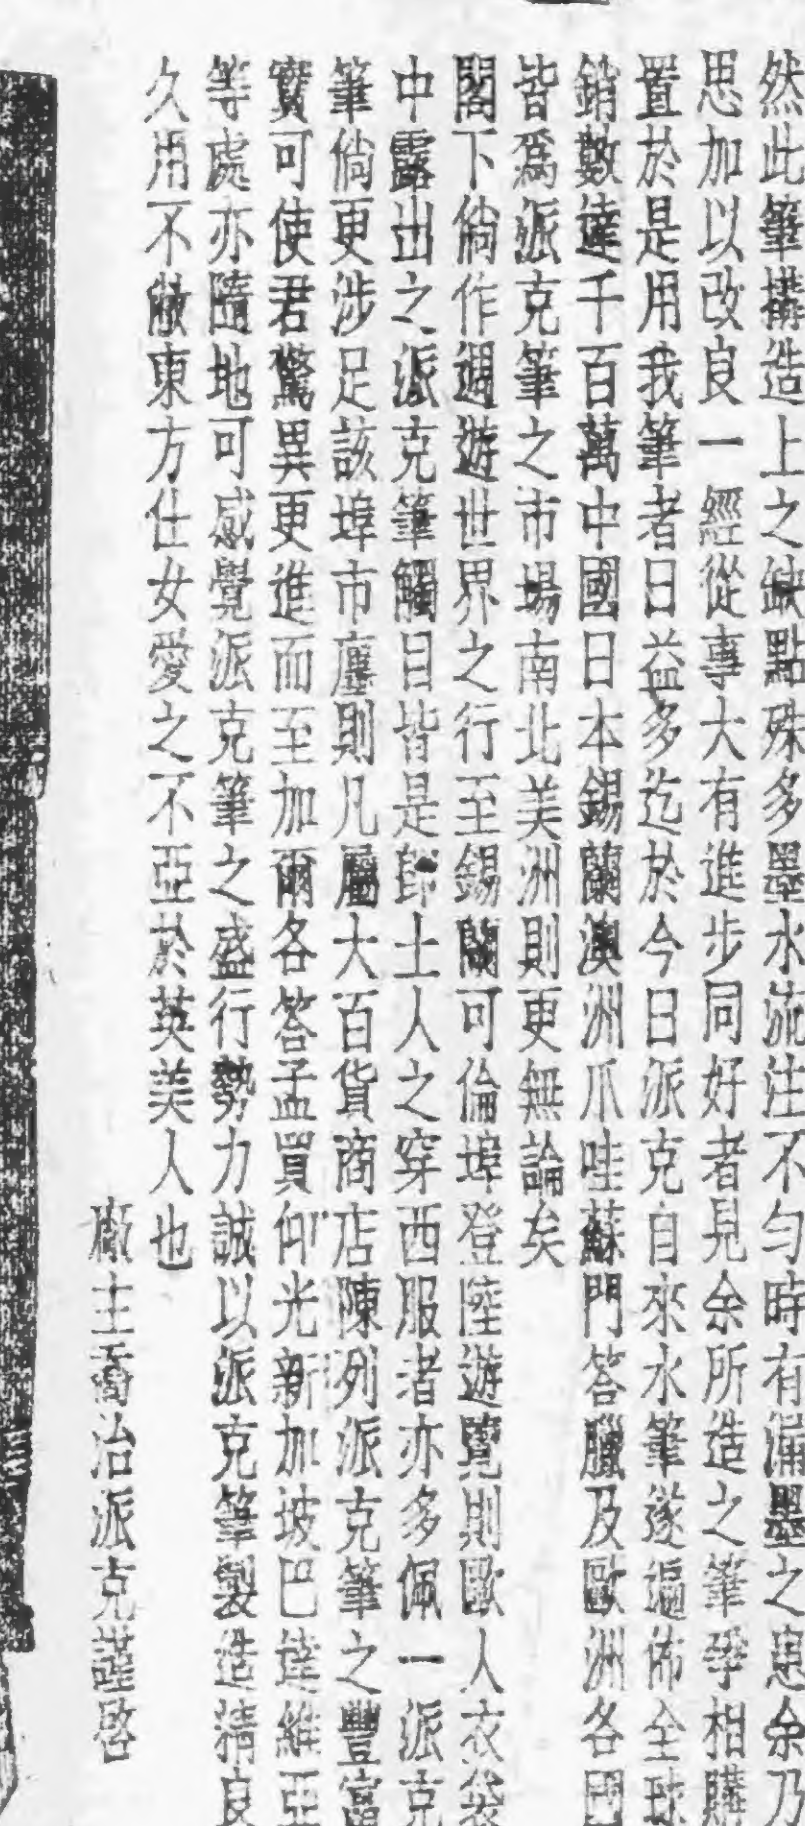 然此筆搆造上之缺點殊多墨水流注不勻時有漏墨之患余乃
思加以改良一經從事大有進步同好者見余所造之筆爭相購
置於是用我筆者日益多迄於今日派克自來水筆遂遍佈全球
銷數達千百萬中國日本錫蘭澳洲爪哇蘇門答臘及歐洲各國
皆爲派克筆之市場南北美洲則更無論矣
閣下倘作週遊世界之行至錫蘭可倫埠登陸遊覽則歐人衣袋
中露出之派克筆觸目皆是卽土人之穿西服者亦多佩一派克
筆倘更涉足該埠市廛則凡屬大百貨商店陳列派克筆之豐富
實可使君驚異更進而至加爾各答孟買仰光新加坡巴達維亞
等處亦隨地可感覺派克筆之盛行勢力誠以派克筆製造精良
久用不敝東方仕女愛之不亞於英美人也
廠主喬治派克謹啓